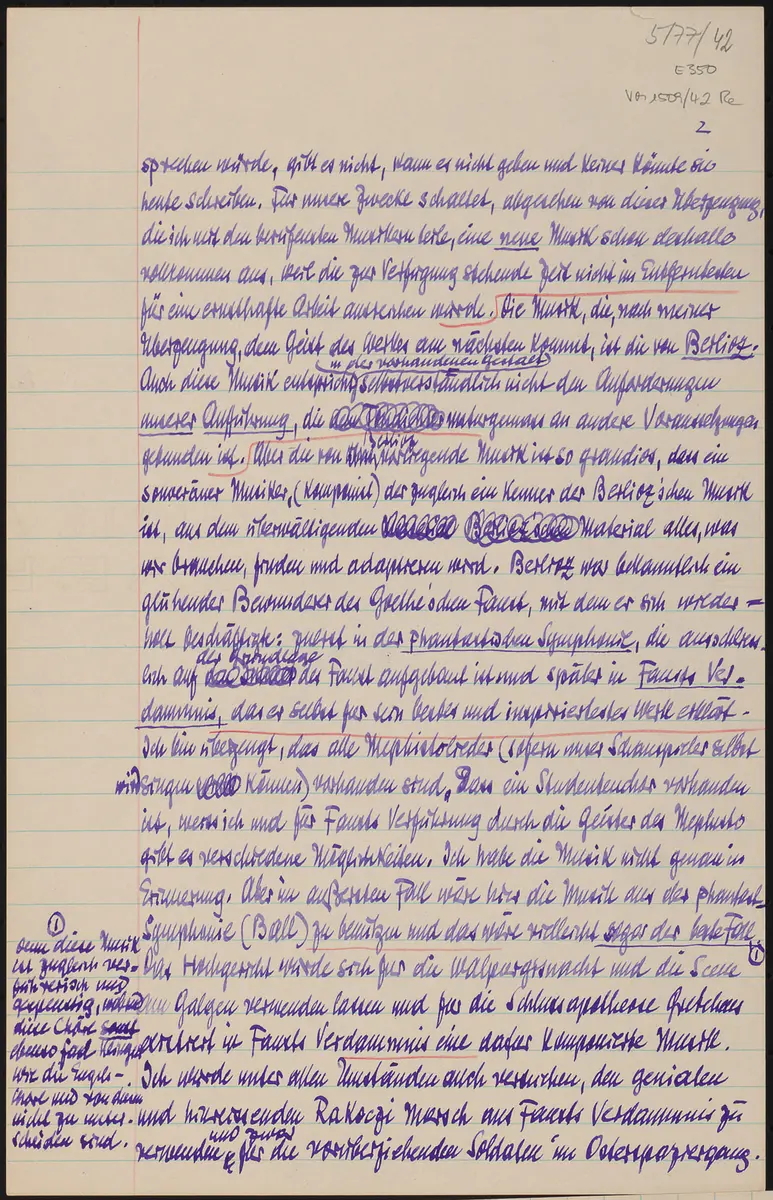 5177/42
E350
2
sprechen würde, gibt es nicht, kann es nicht geben und keiner könnte sie
heute schreiben. Für unsere Zwecke schaltet, abgesehen von dieser Überzeugung,
die ich mit den berufensten Musikern teile, eine neue Musik schon deshalb
vollkommen aus, weil die zur Verfügung stehende Zeit nicht im Entferntesten
für eine ernsthafte Arbeit ausreichen würde. Die Musik, die, nach meiner
Überzeugung, dem Geist des Werkes am nächsten kommt, ist die von Berlioz.
in der vorhandenen Gestalt
Auch diese Musik entspricht selbstverständlich nicht den Anforderungen
unserer Aufführung, die naturgemäss an andere Voraussetzungen
Berlioz
gebunden ist. Aber die von vorliegende Musik ist so grandios, dass ein
souveräner Musiker, (Komponist) der zugleich ein Kenner der Berlioz'schen Musik
ist, aus dem überwältigenden Material alles, was
wir brauchen, finden und adaptieren wird. Berlioz war bekanntlich ein
glühender Bewunderer des Goethe'schen Faust, mit dem er sich wieder=
holt beschäftigte: zuerst in der phantastischen Symphonie, die ausschliess-
der Grundlage
lich auf des Faust aufgebaut ist und später in Fausts Ver-
dammnis, das er selbst für sein bestes und inspiriertestes Werk erklärt.
Ich bin überzeugt, das alle Mephistolieder (sofern unser Schauspieler selbst
wird singen können) vorhanden sind, Dass ein Studentenchor vorhanden
ist, weiss ich und für Fausts Verführung durch die Geister des Mephisto
gibt es verschiedene Möglichkeiten. Ich habe die Musik nicht genau in
Erinnerung. Aber im äußersten Fall wäre hier die Musik aus der phantast.
Symphonie (Ball) zu benützen und das wäre vielleicht sogar der beste Fall.
①
Das Hochgericht würde sich für die Walpurgisnacht und die Scene
am Galgen verwenden lassen und für die Schlussapotheose Gretchens
existiert in Fausts Verdammnis eine dafür komponierte Musik.
Ich würde unter allen Umständen auch versuchen, den genialen
und hinreissenden Rakoczi Marsch aus Fausts Verdammnis zu
und zwar
verwenden für die vorüberziehenden Soldaten im Osterspaziergang.
①
denn diese Musik
ist zugleich ver=
führerisch und
gespenstig, während
diese Chöre sonst
ebenso fad klingen
wie die Engels-
chöre und von denen
nicht zu unter-
scheiden sind.